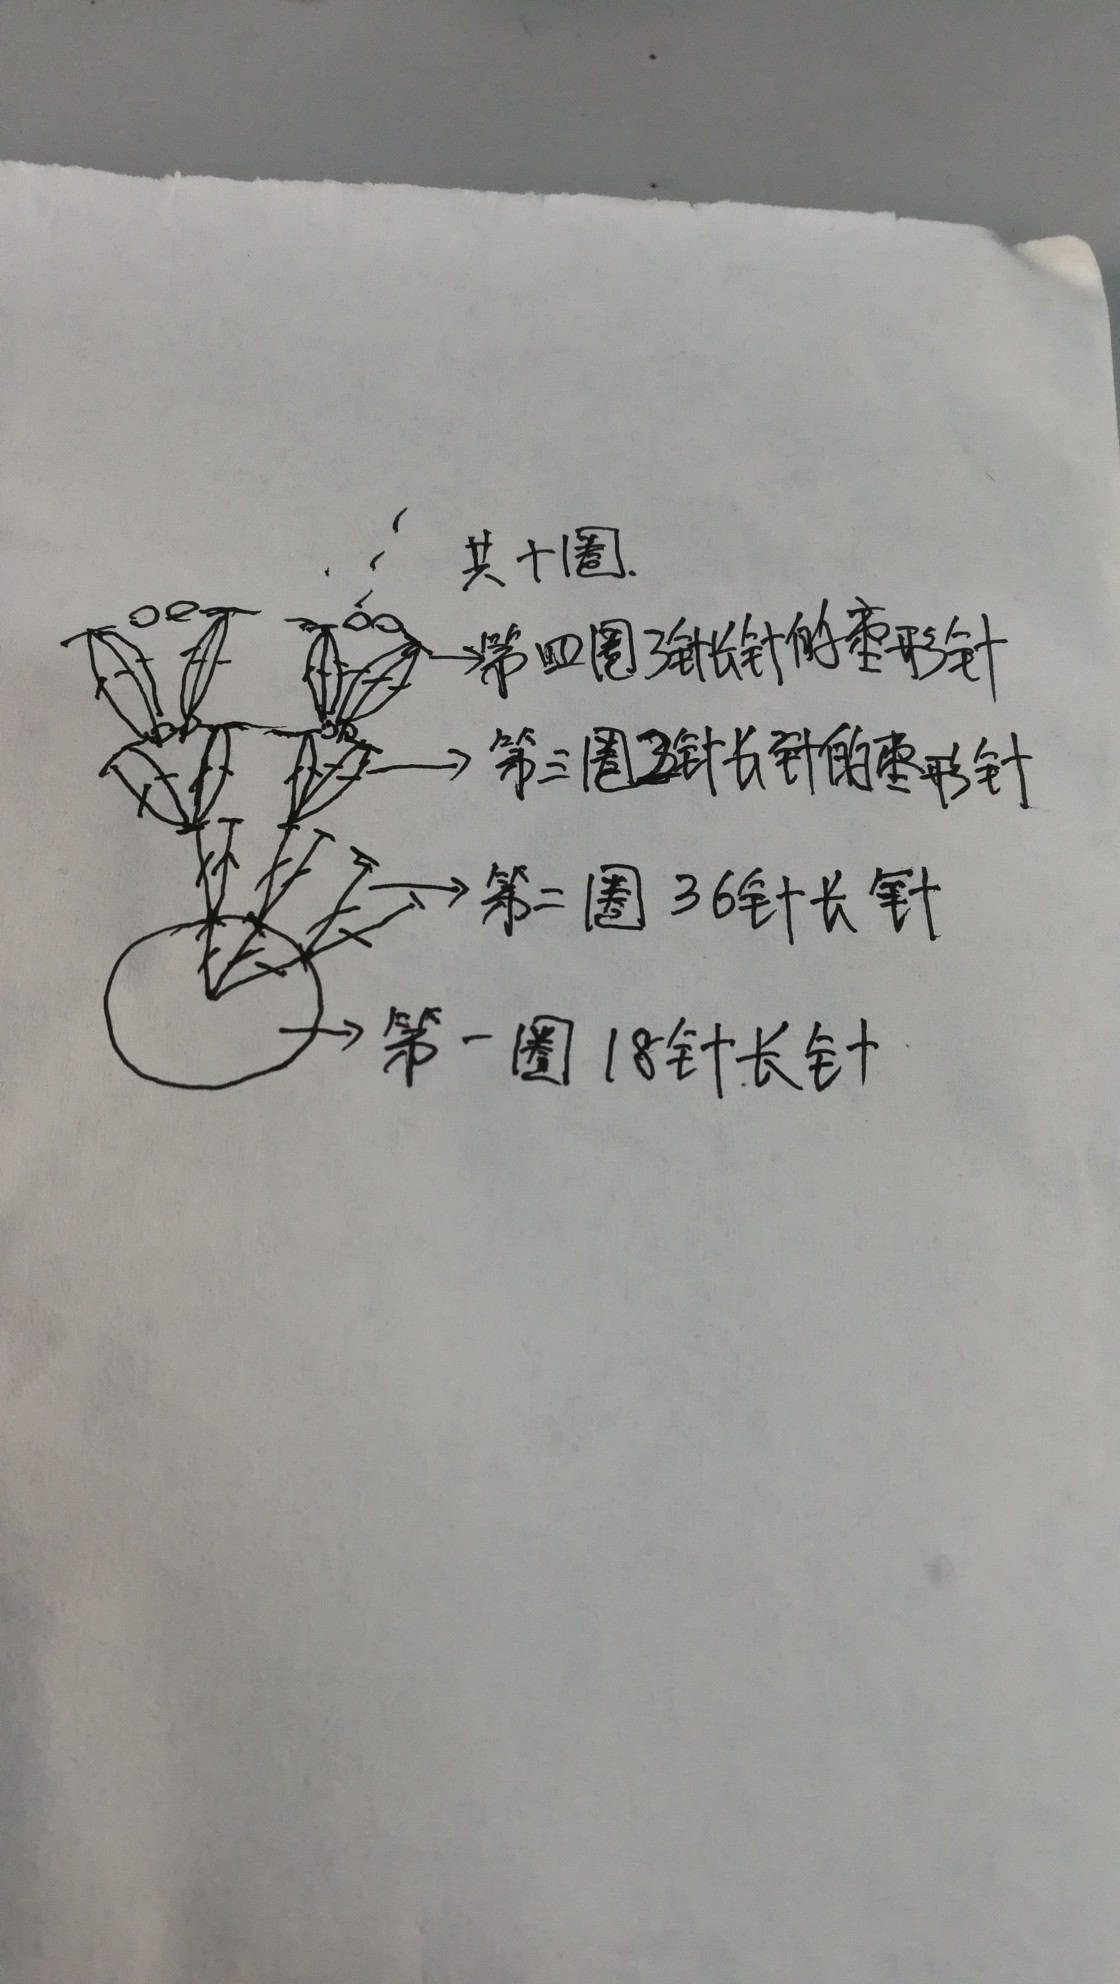 共十圈.
第四圈3针长针的枣形针
第三圈3针长针的枣形针
第二圈 36针长针
第一圈 18针长针